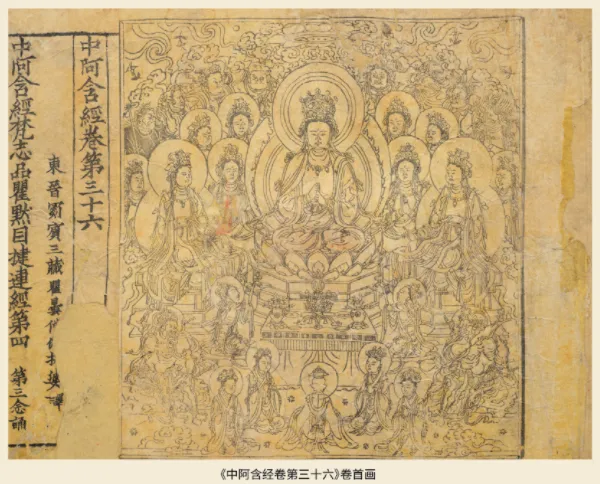 中阿含經卷第三十六
東晉罽賓三藏瞿曇婆譯
中阿含經梵志品瞿默目揵連經第四 第三念誦
《中阿含经卷第三十六》卷首画